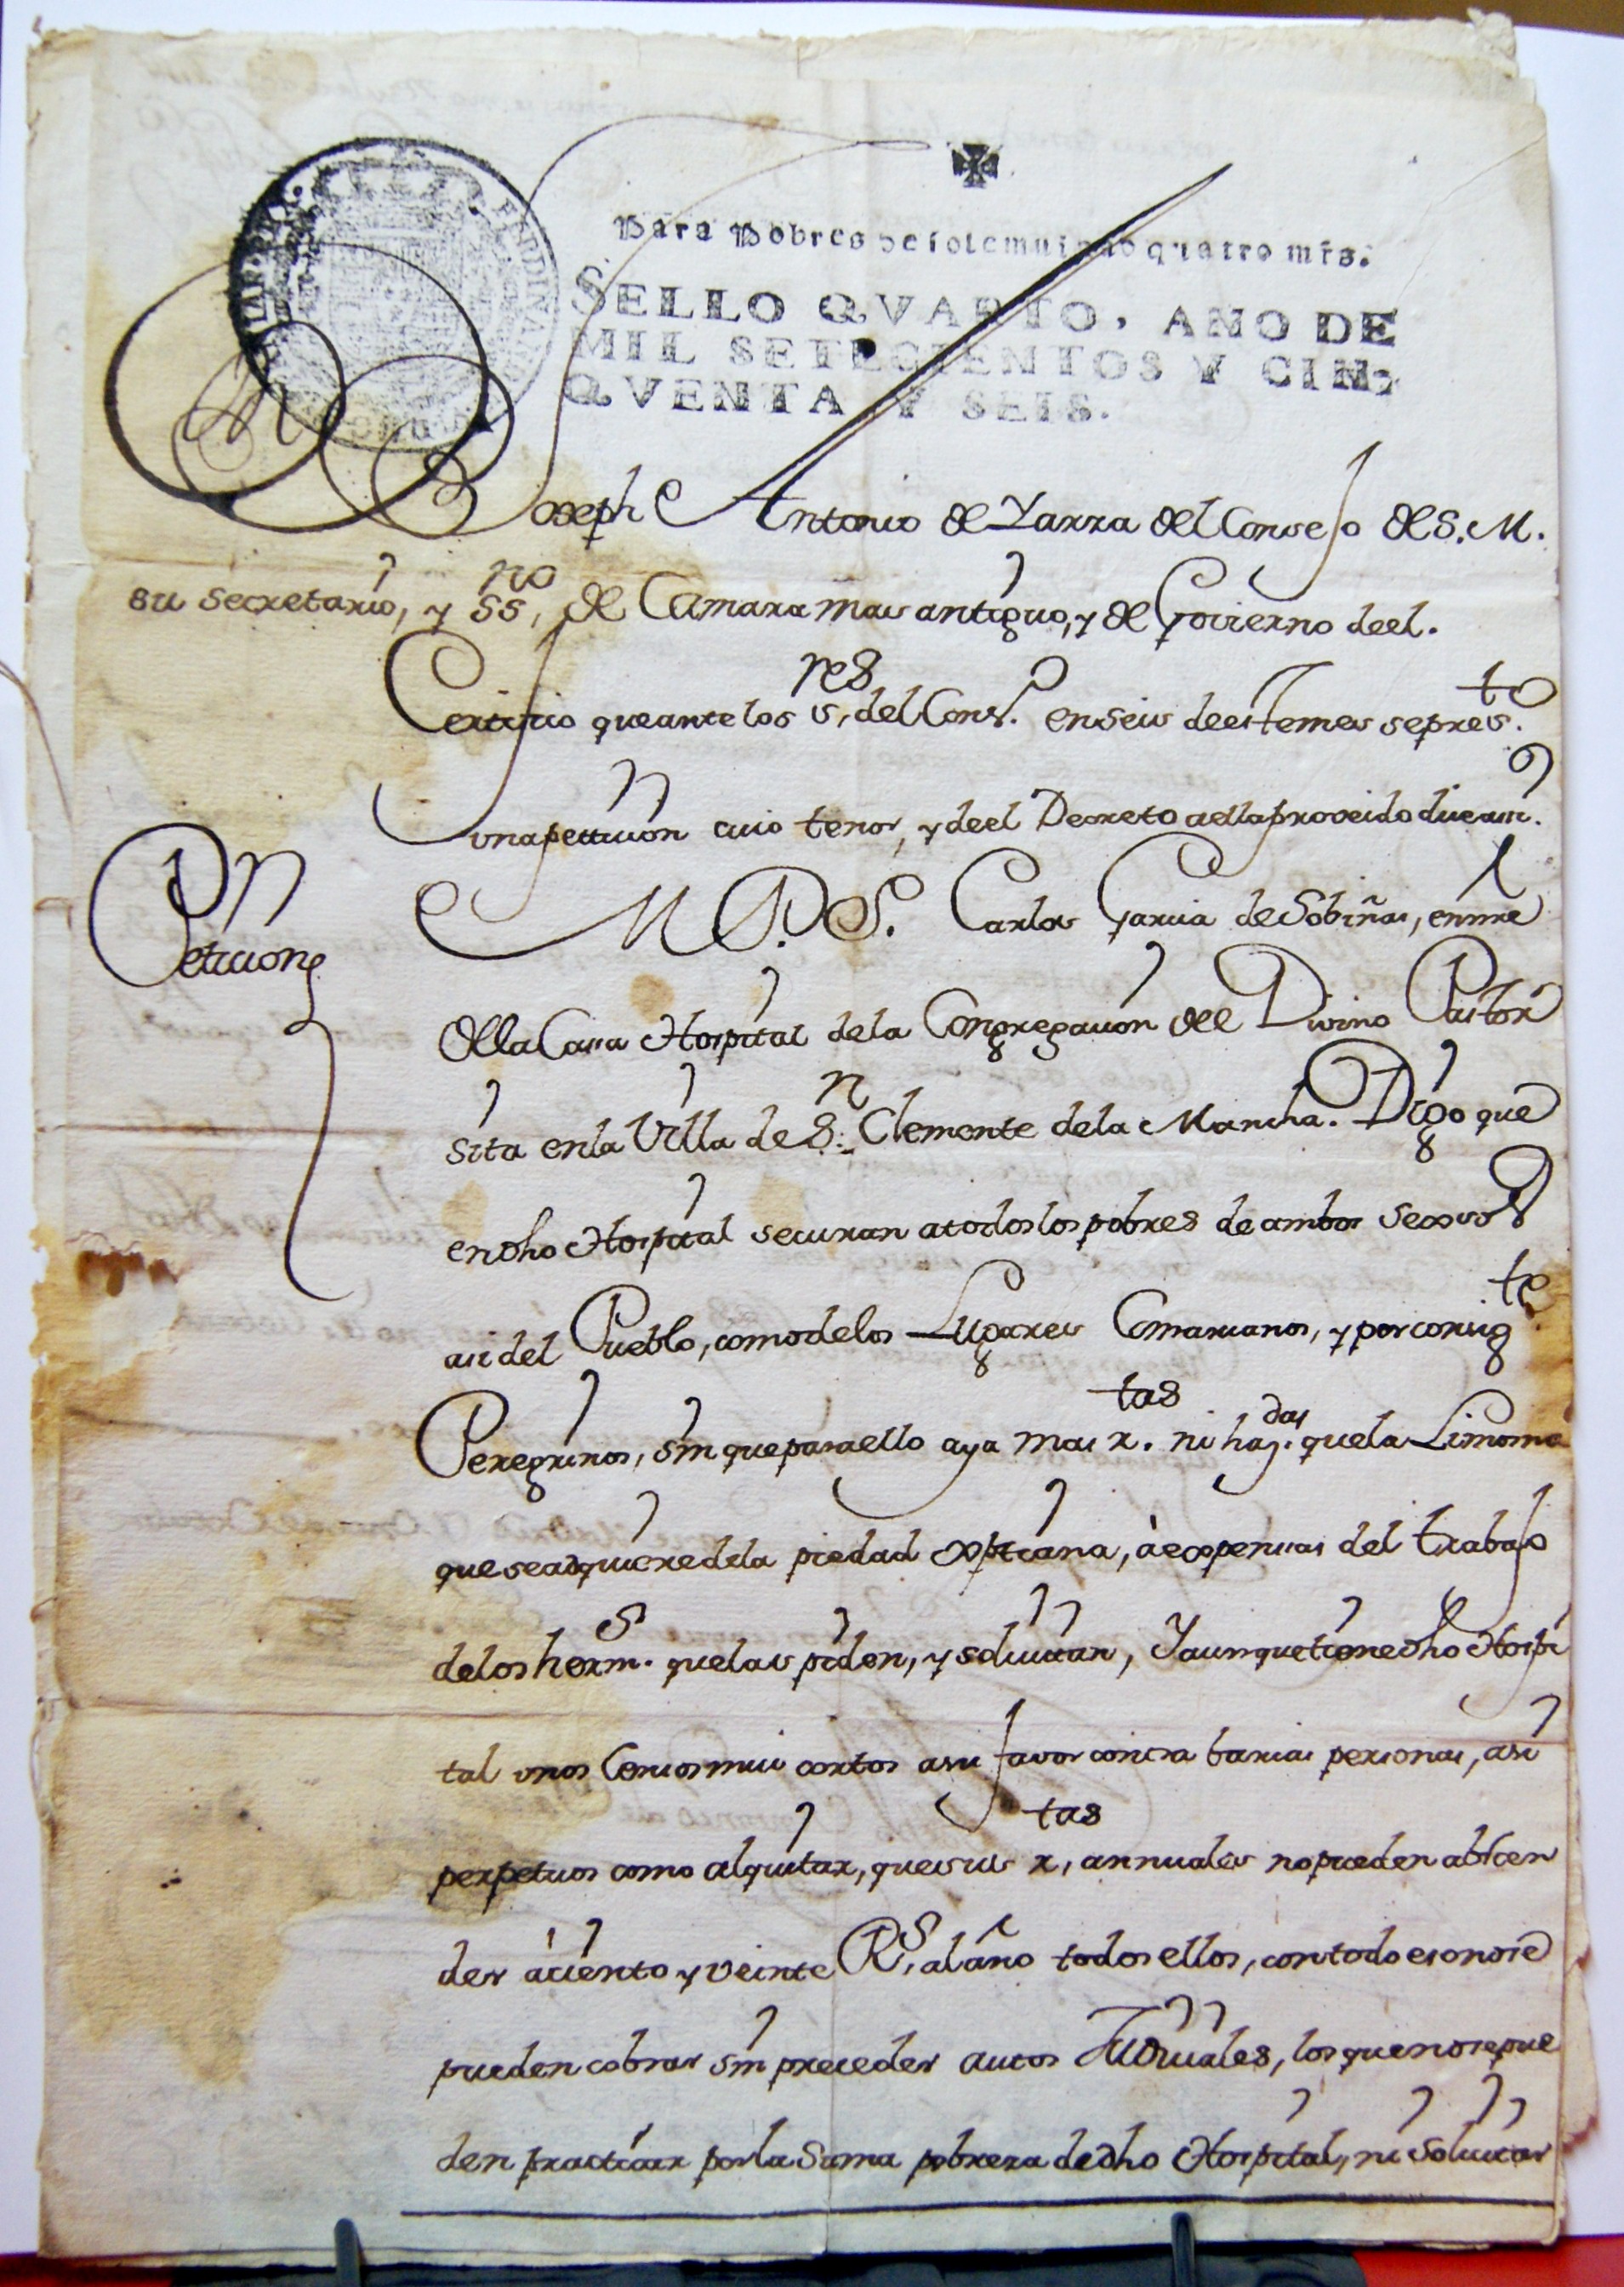 Para Pobres de solemnidad quatro mrs.
SELLO QVARTO, AÑO DE
MIL SETECIENTOS Y CIN-
QVENTA Y SEIS.
Joseph Antonio de Yarza del Consejo de S. M.
su Secretario, y ssno, de Camara mas antiguo, y de Govierno deel.
Certifico que ante los sres, del Cons.o en seis de este mes se pres.to
una petticion cuio tenor, y deel Decreto a ella proveido dice asi.
Peticion
M. P. S. Carlos Garcia de Sobiñas, en nre
de la Casa Hospital de la Congregacion del Divino Pastor
sita en la Villa de S.n Clemente de la Mancha. Digo que
en dho Hospital se curan a todos los pobres de ambos sexos
asi del Pueblo, como de los Lugares Comarcanos, y por consig.te
Peregrinos, sin que para ello aya mas r.tas ni haz.das que la Limosna
que se adquiere de la piedad xptiana, à expensas del trabajo
de los herm.s que las piden, y solicitan, Y aunque tiene dho Hospi
tal unos Censos mui cortos a su favor contra barias personas, asi
perpetuos como al quitar, que sus r,tas annuales no pueden abscen
der à ciento y veinte R,s al año todos ellos, con todo eso no se
pueden cobrar sin preceder autos Judiciales, los que no se pue
den practicar por la suma pobreza de dho Hospital, ni solicitar